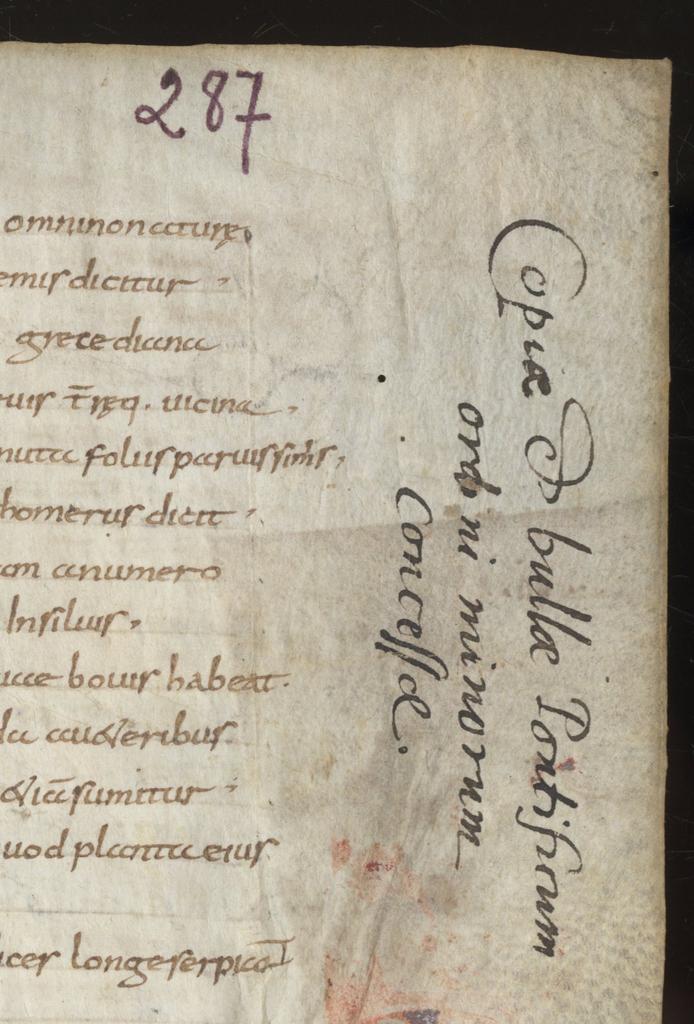 287
omninonaturę
emisdicitur
grecediana
uis t̄ręq. uicina
nuta foliisparuissimis,
homerus dicit
am anumero
Insiluis,
uce bouis habeat.
la au&eribus
&iāsumitur
uod plantaeius
icer longeserpiat
Copiæ & bullæ Pontificum
ordini minorum
Concessæ.